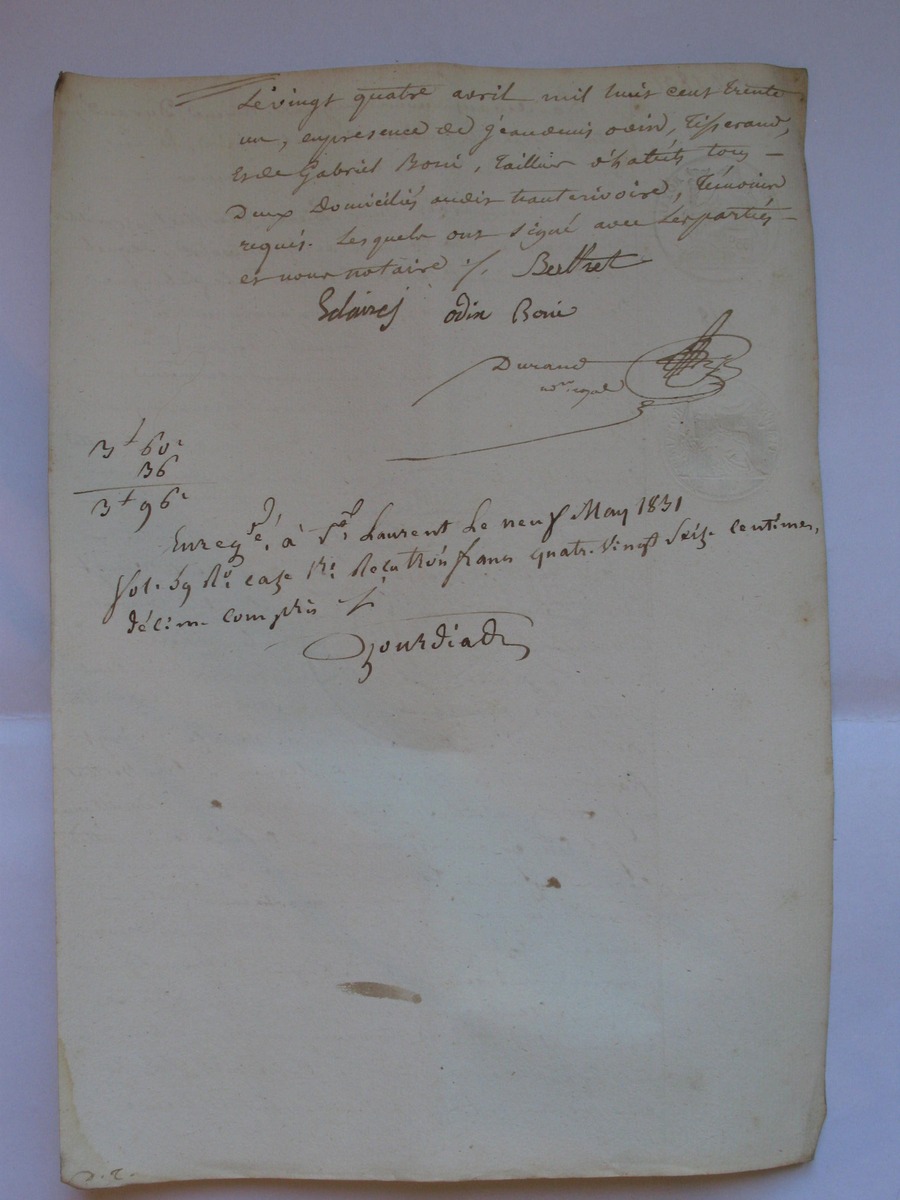 Le vingt quatre avril mil huit cent trente
un, en presence de jeandenis odin, Tisserand,
Et de Gabriel Borié, Tailleur d'habits tous –
Deux Domiciliés audit hauterivoire, Témoins
requis. Lesquels ont signé avec Les parties –
et nous notaire ./. Berthet
odin Borié
Durand
no.re royal
3 f 60 c
36
3 f 96 c
Enregé. à St. Laurent Le neuf May 1831
Vol. 59 Ro. case Recu trois francs quatre-vingt Seize Centimes,
décime compris ./.